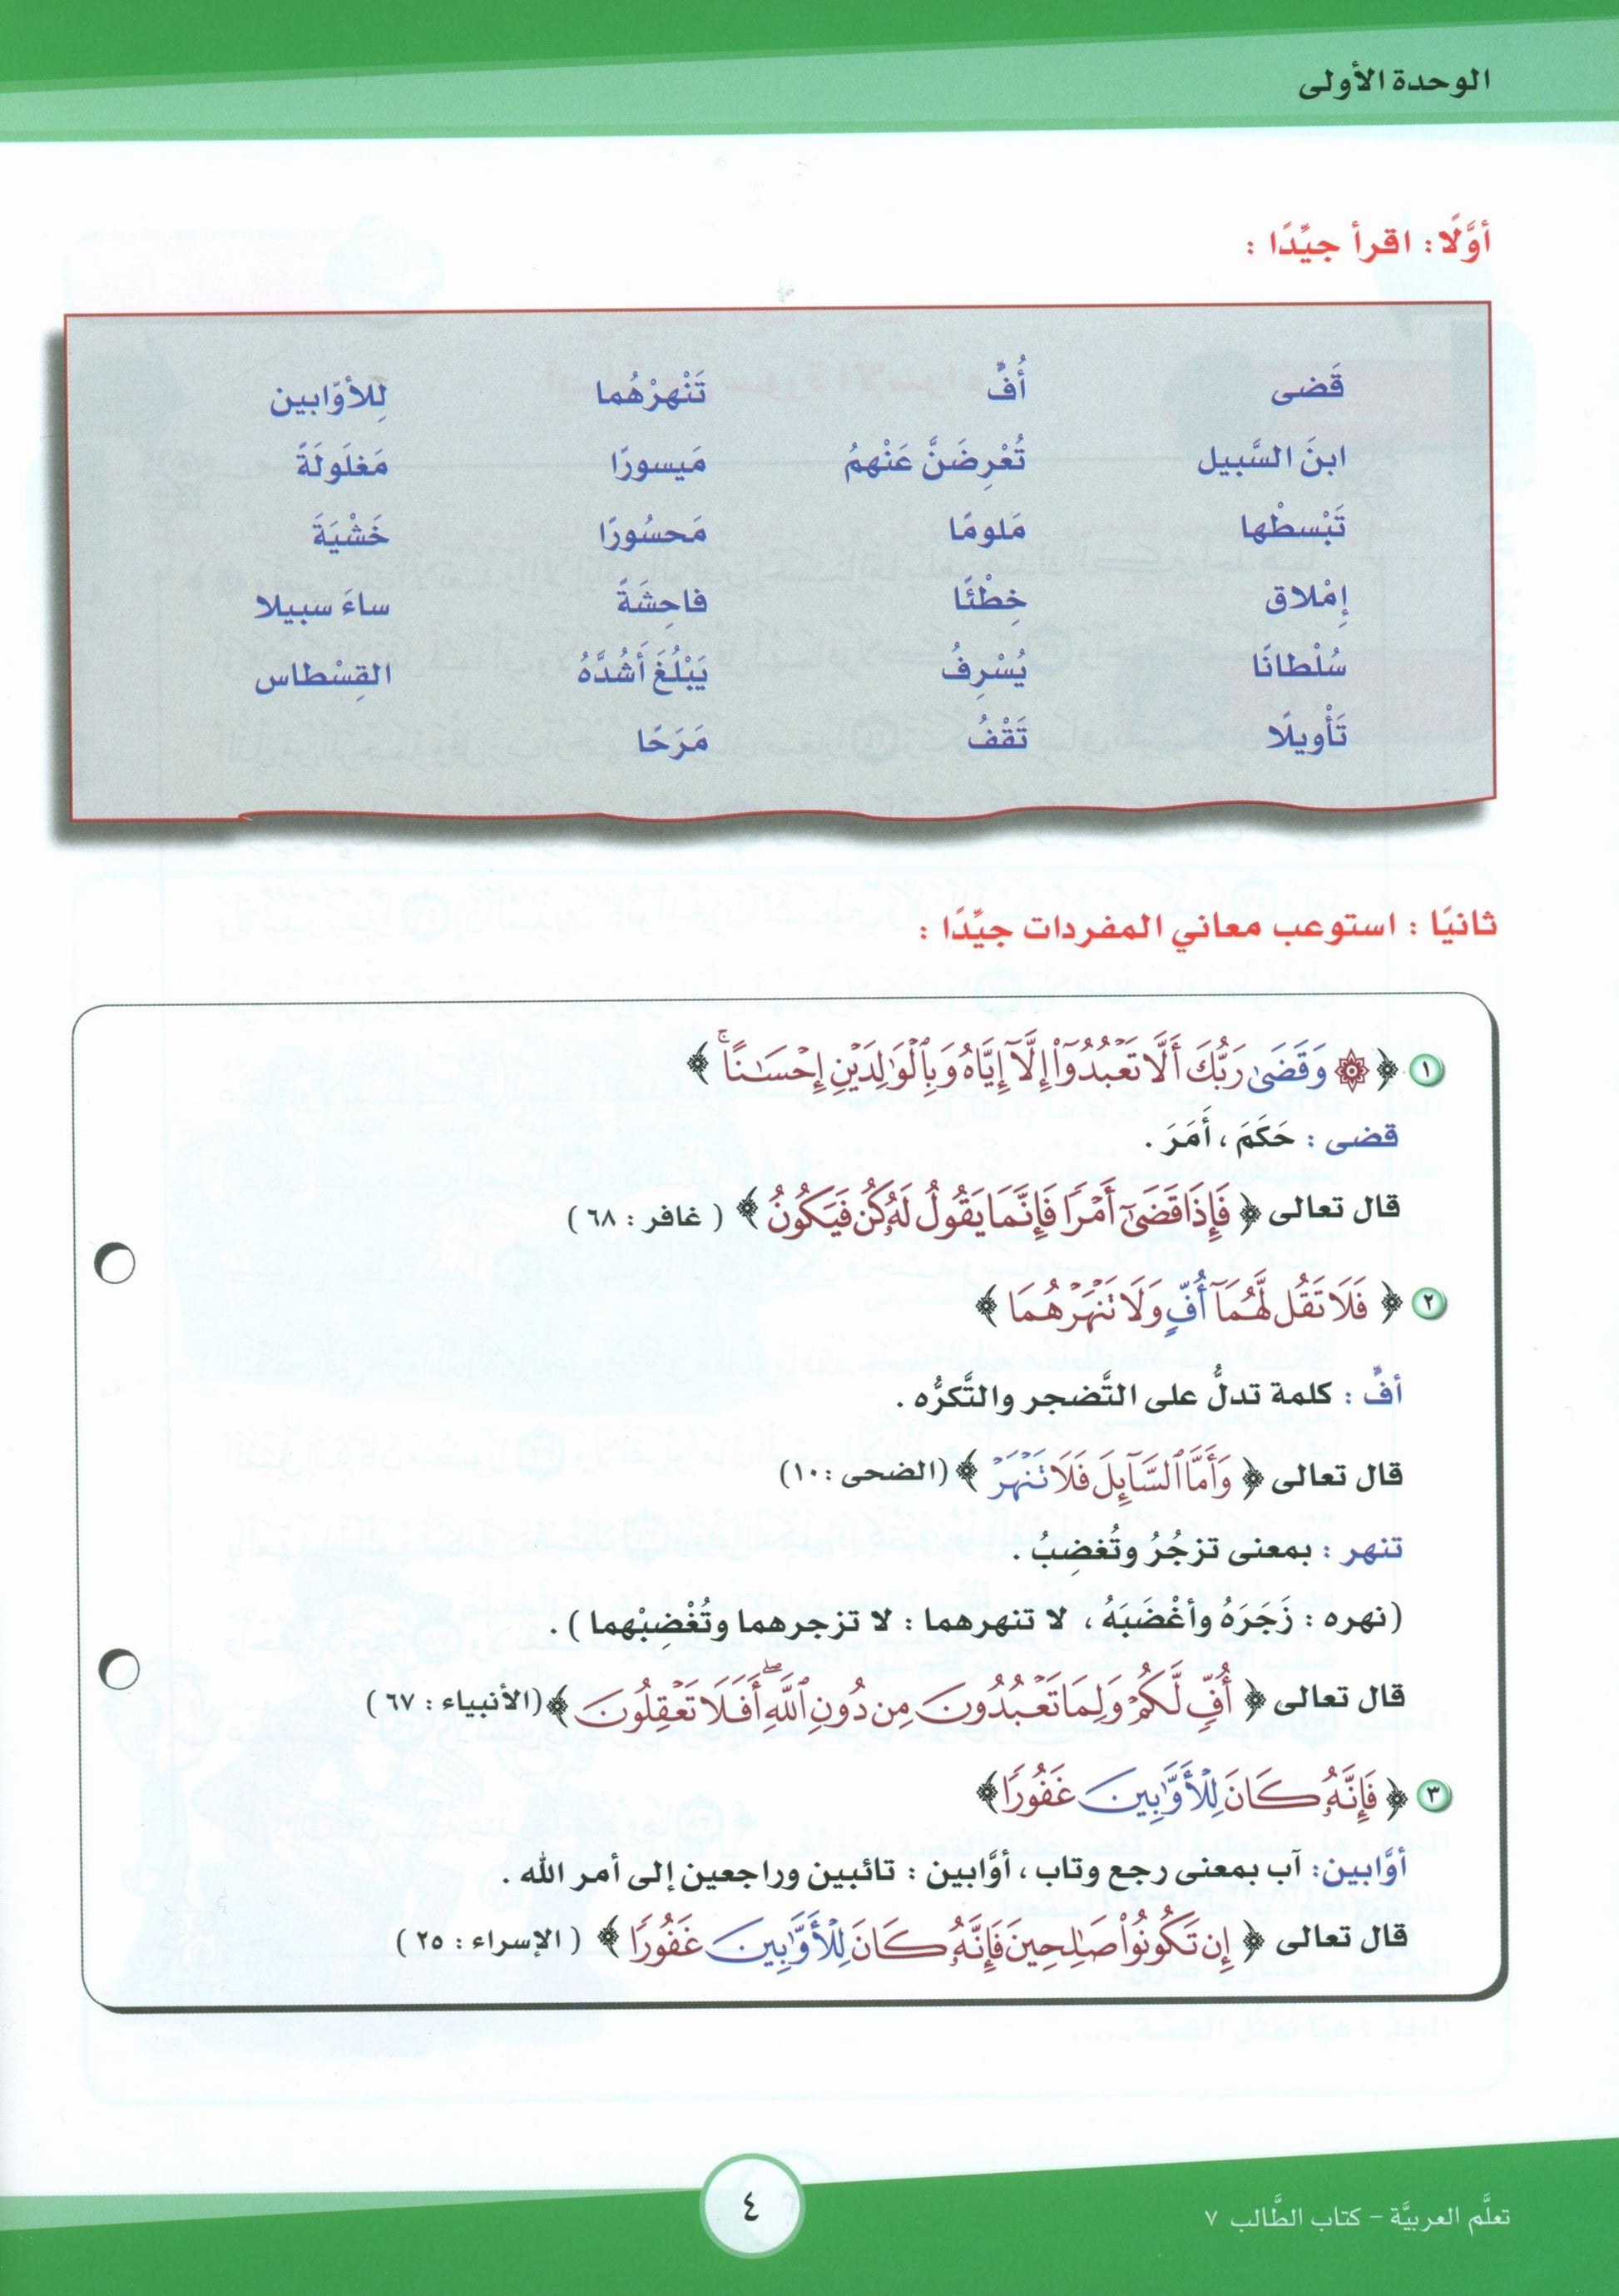 الوحدة الأولى
أوَّلًا: اقرأ جيِّدًا :
قَضى أُفٍّ تَنْهرْهُما لِلأوّابين
ابنَ السَّبيل تُعْرِضَنَّ عَنْهمُ مَيسورًا مَغلَولَةً
تَبْسطْها مَلومًا مَحسُورًا خَشْيَةَ
إِمْلاق خِطْئًا فاحِشَةً ساءَ سبيلا
سُلْطانًا يُسْرِفُ يَبْلُغَ أَشُدَّهُ القِسْطاس
تَأْويلًا تَقْفُ مَرَحًا
ثانيًا : استوعب معاني المفردات جيِّدًا :
١ ﴿ ۞ وَقَضَىٰ رَبُّكَ أَلَّا تَعۡبُدُوٓاْ إِلَّآ إِيَّاهُ وَبِٱلۡوَٰلِدَيۡنِ إِحۡسَٰنًاۚ ﴾
قضى : حَكَمَ ، أَمَرَ .
قال تعالى ﴿ فَإِذَا قَضَىٰٓ أَمۡرٗا فَإِنَّمَا يَقُولُ لَهُۥ كُن فَيَكُونُ ﴾ ( غافر : ٦٨ )
٢ ﴿ فَلَا تَقُل لَّهُمَآ أُفّٖ وَلَا تَنۡهَرۡهُمَا ﴾
أفٍّ : كلمة تدلُّ على التَّضجر والتَّكرُّه .
قال تعالى ﴿ وَأَمَّا ٱلسَّآئِلَ فَلَا تَنۡهَرۡ ﴾ (الضحى : ١٠)
تنهر : بمعنى تزجُرُ وتُغضِبُ .
(نهره : زَجَرَهُ وأغْضَبَهُ ، لا تنهرهما : لا تزجرهما وتُغْضِبْهما ) .
قال تعالى ﴿ أُفّٖ لَّكُمۡ وَلِمَا تَعۡبُدُونَ مِن دُونِ ٱللَّهِۚ أَفَلَا تَعۡقِلُونَ ﴾ (الأنبياء : ٦٧ )
٣ ﴿ فَإِنَّهُۥ كَانَ لِلۡأَوَّٰبِينَ غَفُورٗا ﴾
أوَّابين: آب بمعنى رجع وتاب ، أوَّابين : تائبين وراجعين إلى أمر الله .
قال تعالى ﴿ إِن تَكُونُواْ صَٰلِحِينَ فَإِنَّهُۥ كَانَ لِلۡأَوَّٰبِينَ غَفُورٗا ﴾ ( الإسراء : ٢٥ )
٤
تعلَّم العربيَّة – كتاب الطَّالب ٧